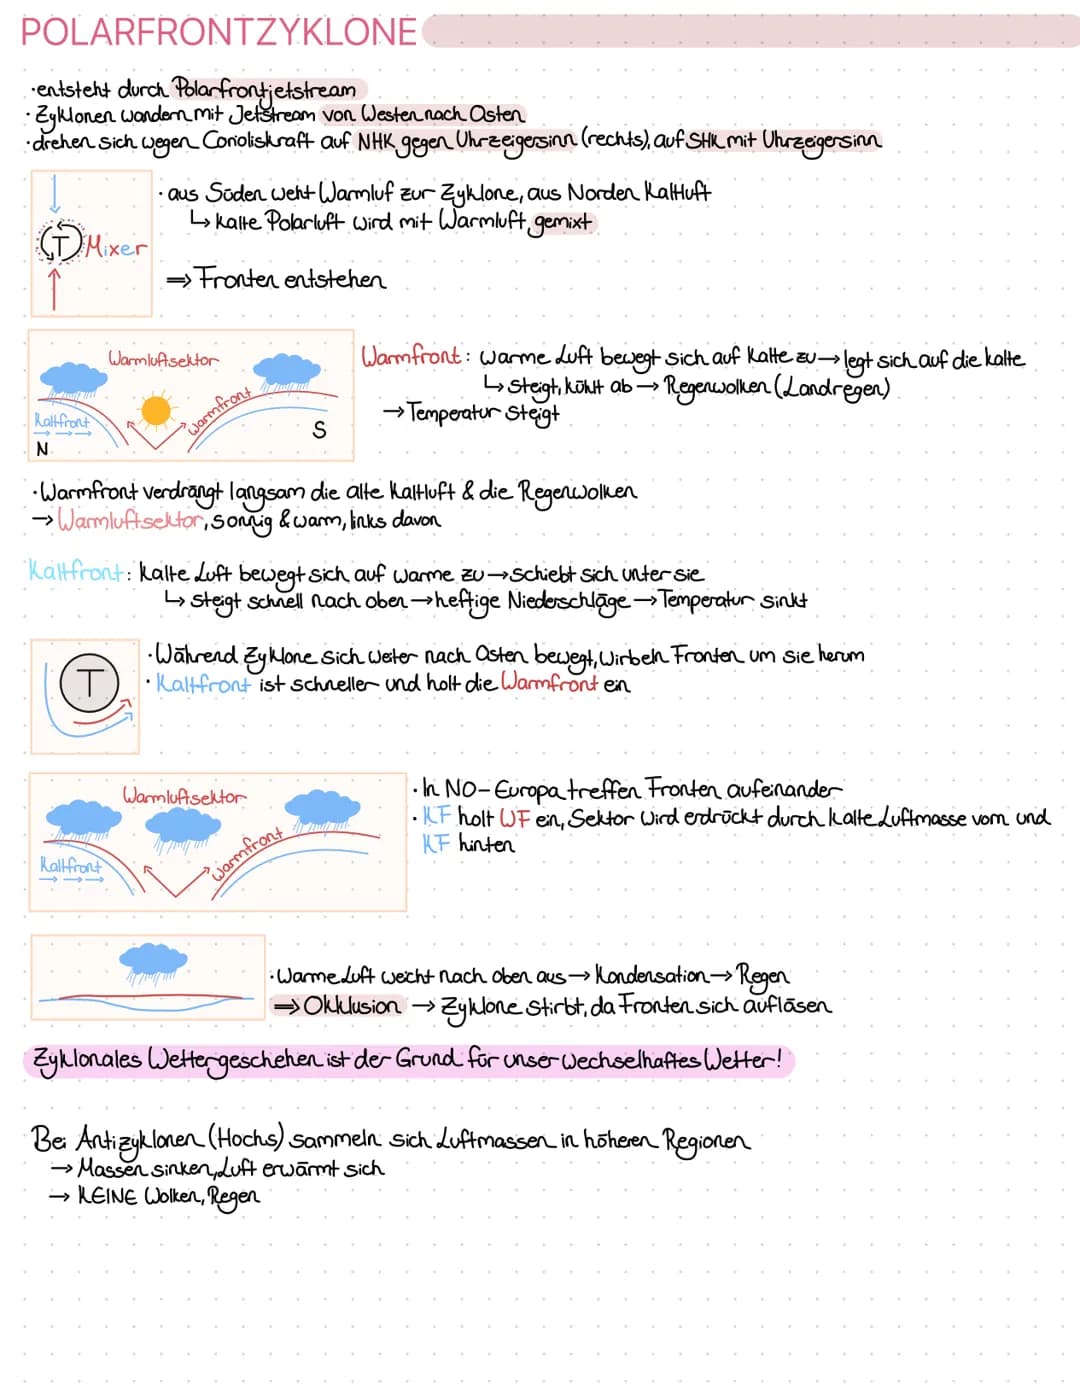 POLARFRONTZYKLONE
·entsteht durch Polarfrontjetstream
·Zyklonen wandern mit Jetstream von Westen nach Osten
·drehen sich wegen Corioliskraft auf NHK gegen Uhrzeigersinn (rechts), auf SHK mit Uhrzeigersinn
T Mixer
·aus Süden weht Warmluf zur Zyklone, aus Norden Kaltluft
↳ kalte Polarluft wird mit Warmluft gemixt
⇒ Fronten entstehen
Warmluftsektor
Kaltfront
Warmfront
N
S
Warmfront: warme Luft bewegt sich auf Kalte zu → legt sich auf die kalte
↳ steigt, kühlt ab → Regenwolken (Landregen)
→ Temperatur steigt
·Warmfront verdrängt langsam die alte Kaltluft & die Regenwolken
→ Warmluftsektor, sonnig & warm, links davon
Kaltfront: kalte Luft bewegt sich auf warme zu → schiebt sich unter sie
↳ steigt schnell nach oben → heftige Niederschläge → Temperatur sinkt
T
·Während Zyklone sich weiter nach Osten bewegt, wirbeln Fronten um sie herum
·Kaltfront ist schneller und holt die Warmfront ein
Warmluftsektor
Kaltfront
Warmfront
·In NO-Europa treffen Fronten aufeinander
·KF holt WF ein, Sektor wird erdrückt durch kalte Luftmasse vorn und
KF hinten
·Warme Luft weicht nach oben aus → Kondensation → Regen
⇒ Okklusion → Zyklone stirbt, da Fronten sich auflösen
Zyklonales Wettergeschehen ist der Grund für unser wechselhaftes Wetter!
Bei Antizyklonen (Hochs) sammeln sich Luftmassen in höheren Regionen
→ Massen sinken, Luft erwärmt sich
→ KEINE Wolken, Regen